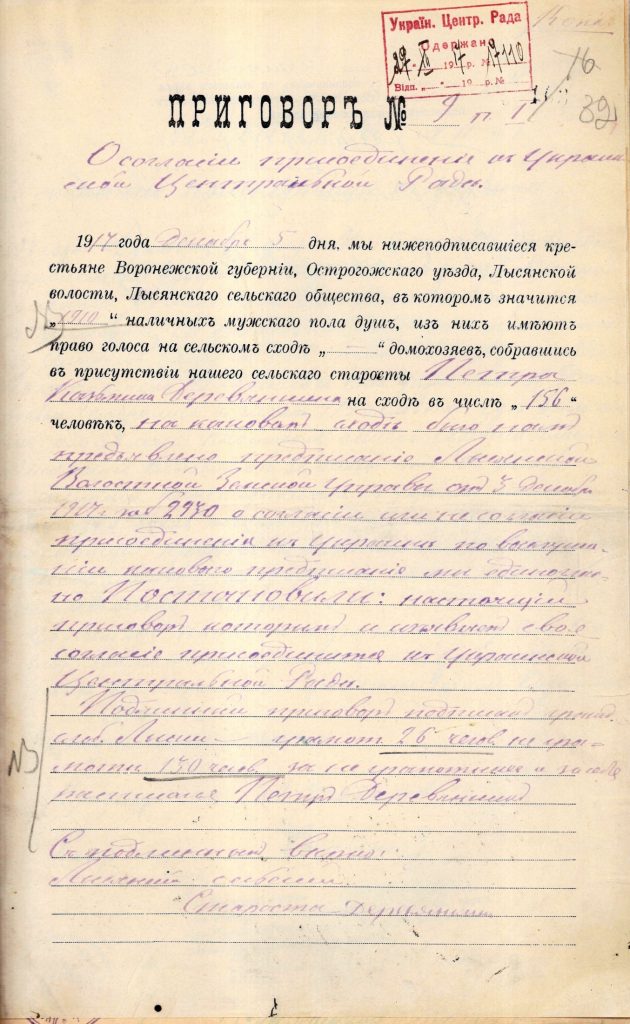 Україн. Центр. Рада
Одержан
29 XII 1917 р. № 17110
Відп. „ “ 19 р. №
Копія
16
39
ПРИГОВОРЪ № 9
О согласіи присоединенія къ Украин
ской Центральной Рады.
1917 года Декабря 5 дня, мы нижеподписавшіеся кре-
стьяне Воронежской губерніи, Острогожскаго уѣзда, Лысянской
волости, Лысянскаго сельскаго общества, въ которомъ значится
„1910“ наличныхъ мужскаго пола душъ, изъ нихъ имѣютъ
право голоса на сельскомъ сходѣ „—“ домохозяевъ, собравшись
въ присутствіи нашего сельскаго старосты Петра
Деревянкина на сходѣ въ числѣ „156“
человѣкъ, на каковомъ сходѣ было намъ
предъявлено предписаніе Лысянской
Волостной Земской Управы отъ 3 Декабря
1917 г. за № 2930 о согласіи или не согласіи
присоединенія къ Украинѣ по выслуша-
ніи каковаго предписанія мы единоглас-
но Постановили: настоящій
приговоръ которымъ и изъявляемъ свое
согласіе присоединится къ Украинской
Центральной Рады.
Подлинный приговоръ подписали гражд.
слоб. Лысянки грамот. 26 челов. не гра-
мотн. 130 челов. за не грамотныхъ и за себя
росписался Петръ Деревянкинъ
Съ подлиннымъ вѣрно:
Лысянскій сельскій
Староста Деревянкинъ